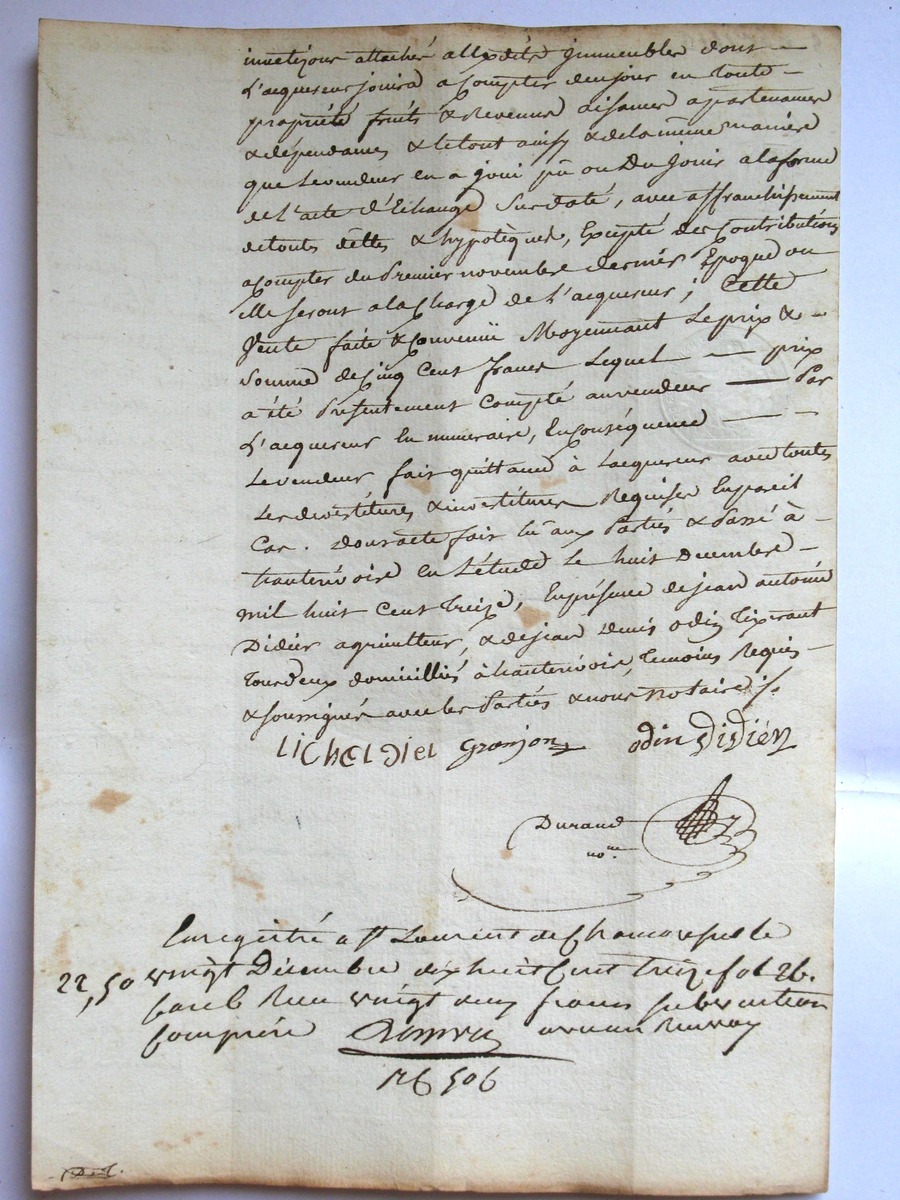 attaché auxdits immeubles dont —
L'acquereur jouira a compter decejour en toute —
propriété fruits & Revenus aisances apartenances
& dépendances & letout ainsy & delamême maniere
que Levendeur en a joui pû ou Du jouir alaforme
de l'acte d'Echange Surdaté, avec affranchissement
detoutes dettes & hypotèques, Excepté des Contributions
acompter du Premier novembre dernier Epoque ou
elle seront alaCharge de l'acquereur; Cette
Vente faite & Convenüe Moyennant Le prix & -
Somme deCinq Cent francs Lequel — prix
a été Présentement Compté auvendeur — Par
L'acquereur En numeraire, EnConséquence — -
Levendeur fait quittance à Lacquereur avectoutes
Les devestitures & investitures Requises Enpareil
Cas. Dontacte fait lû aux Parties & Passé à -
hauterivoire en L'étude Le huit Decembre -
mil huit Cent Treize, Enprésence dejean antoine
Didier agriculteur, & dejean Denis odin Tixerant
Tousdeux domiciliés à hauterivoire, Temoins Requis -
& soussignés avec les Parties & nous Notaire ./.
Granjon odin Didiér
Durand
no.re
Enregistré a St Laurent de Chamousset le
22,50 vingt Décembre dix huit Cent treize fol 26.
Case 6 Recu vingt deux francs subvention
Comprise
126 506